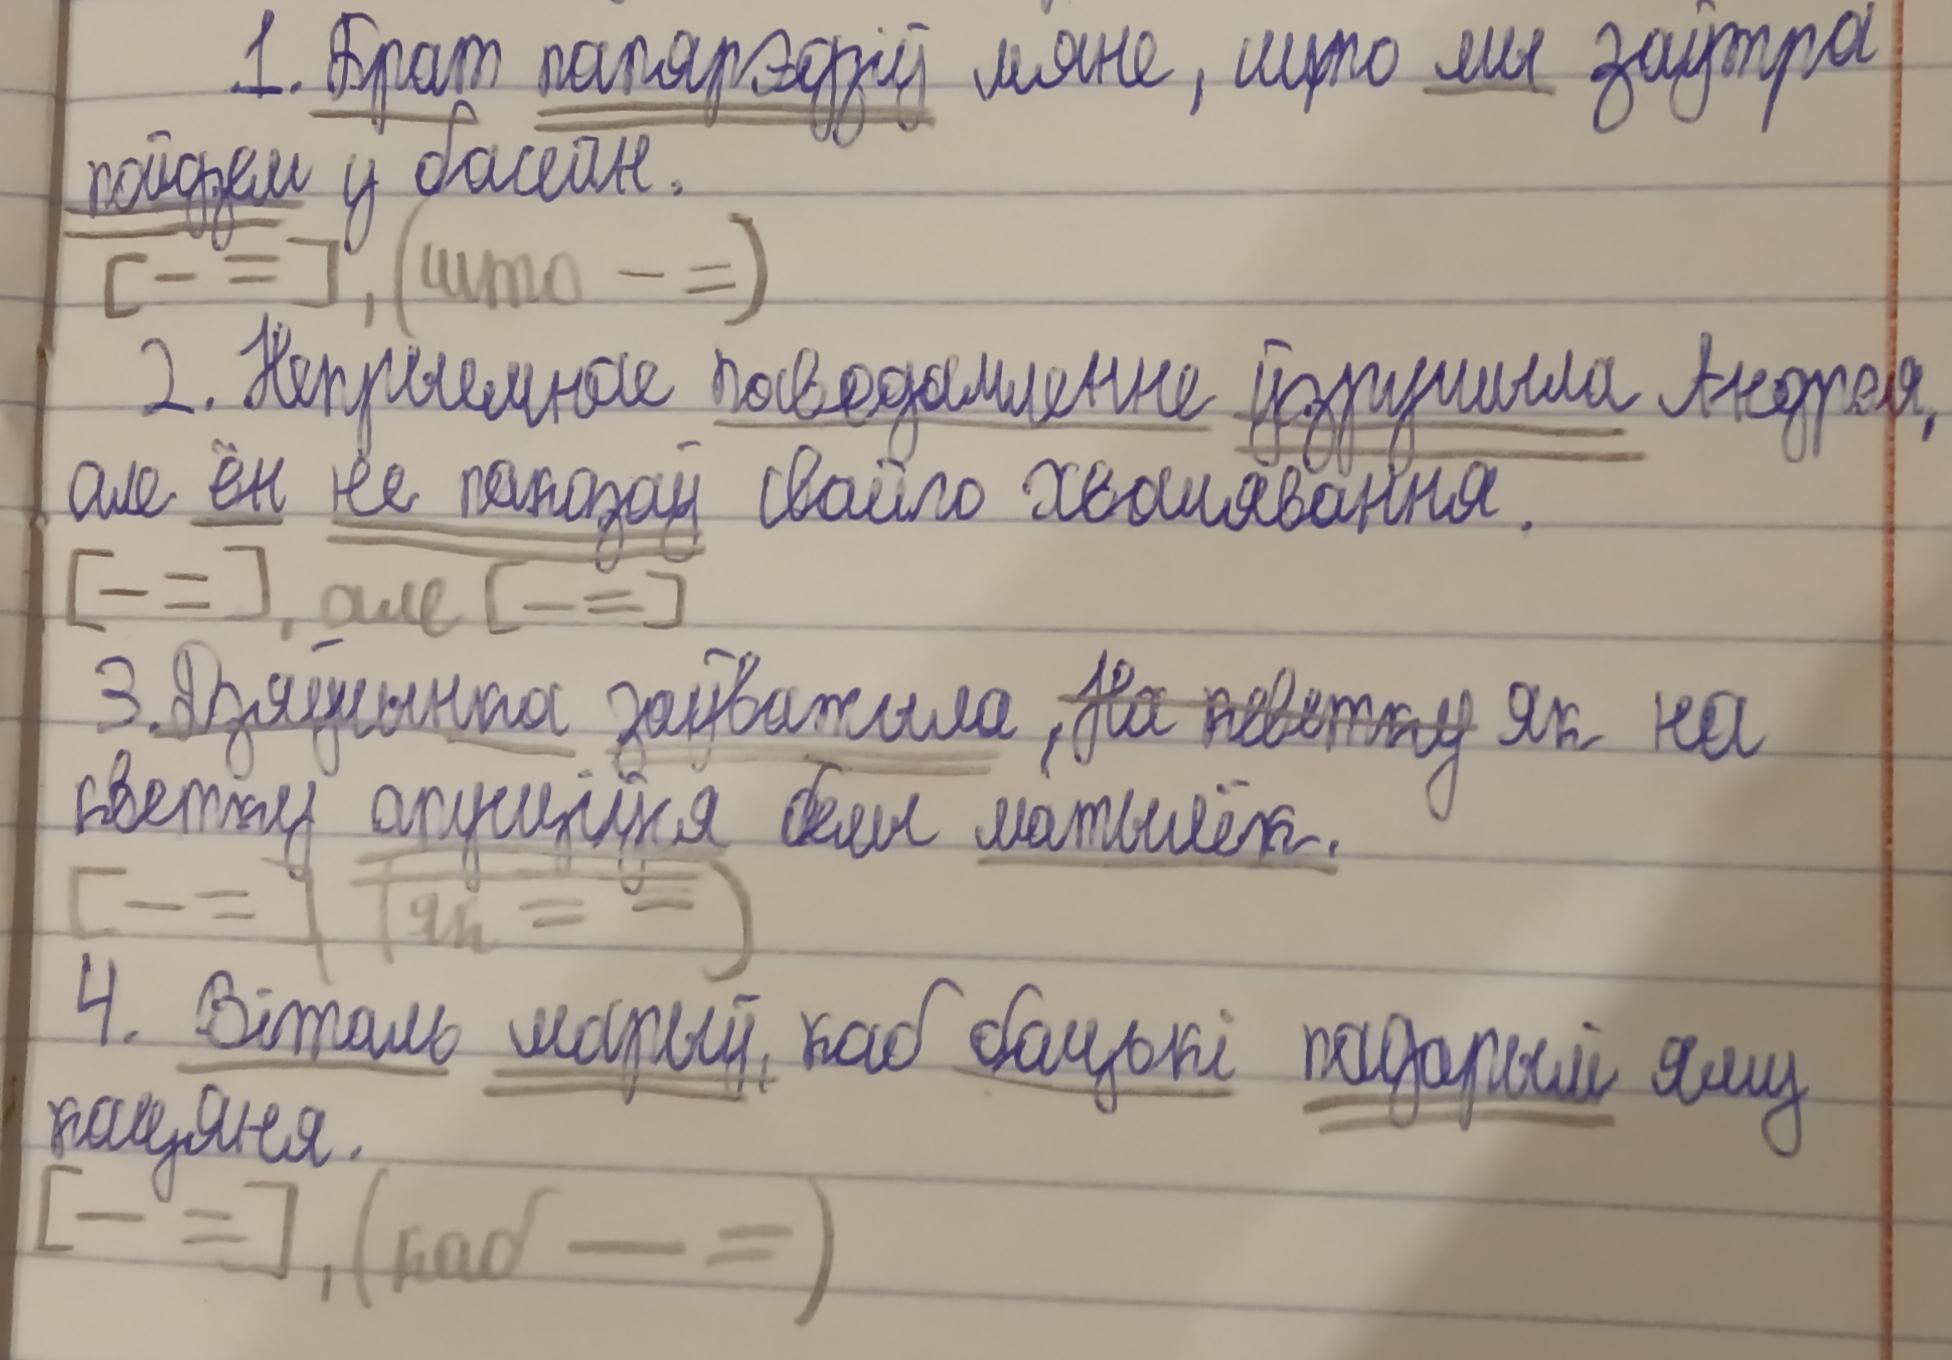 1. Брат папярэдзіў мяне, што мы заўтра
пойдзем у басейн.
[– =], (што – =)
2. Непрыемнае паведамленне ўзрушыла Андрея,
але ён не паказаў свайго хвалявання.
[– =], але [– =]
3. Дзяўчынка заўважыла, На кветку як на
кветку апусціўся белы матылёк.
[– =], (як = =)
4. Віталь марыў, каб бацькі падарылі яму
кацяня.
[– =], (каб – =)